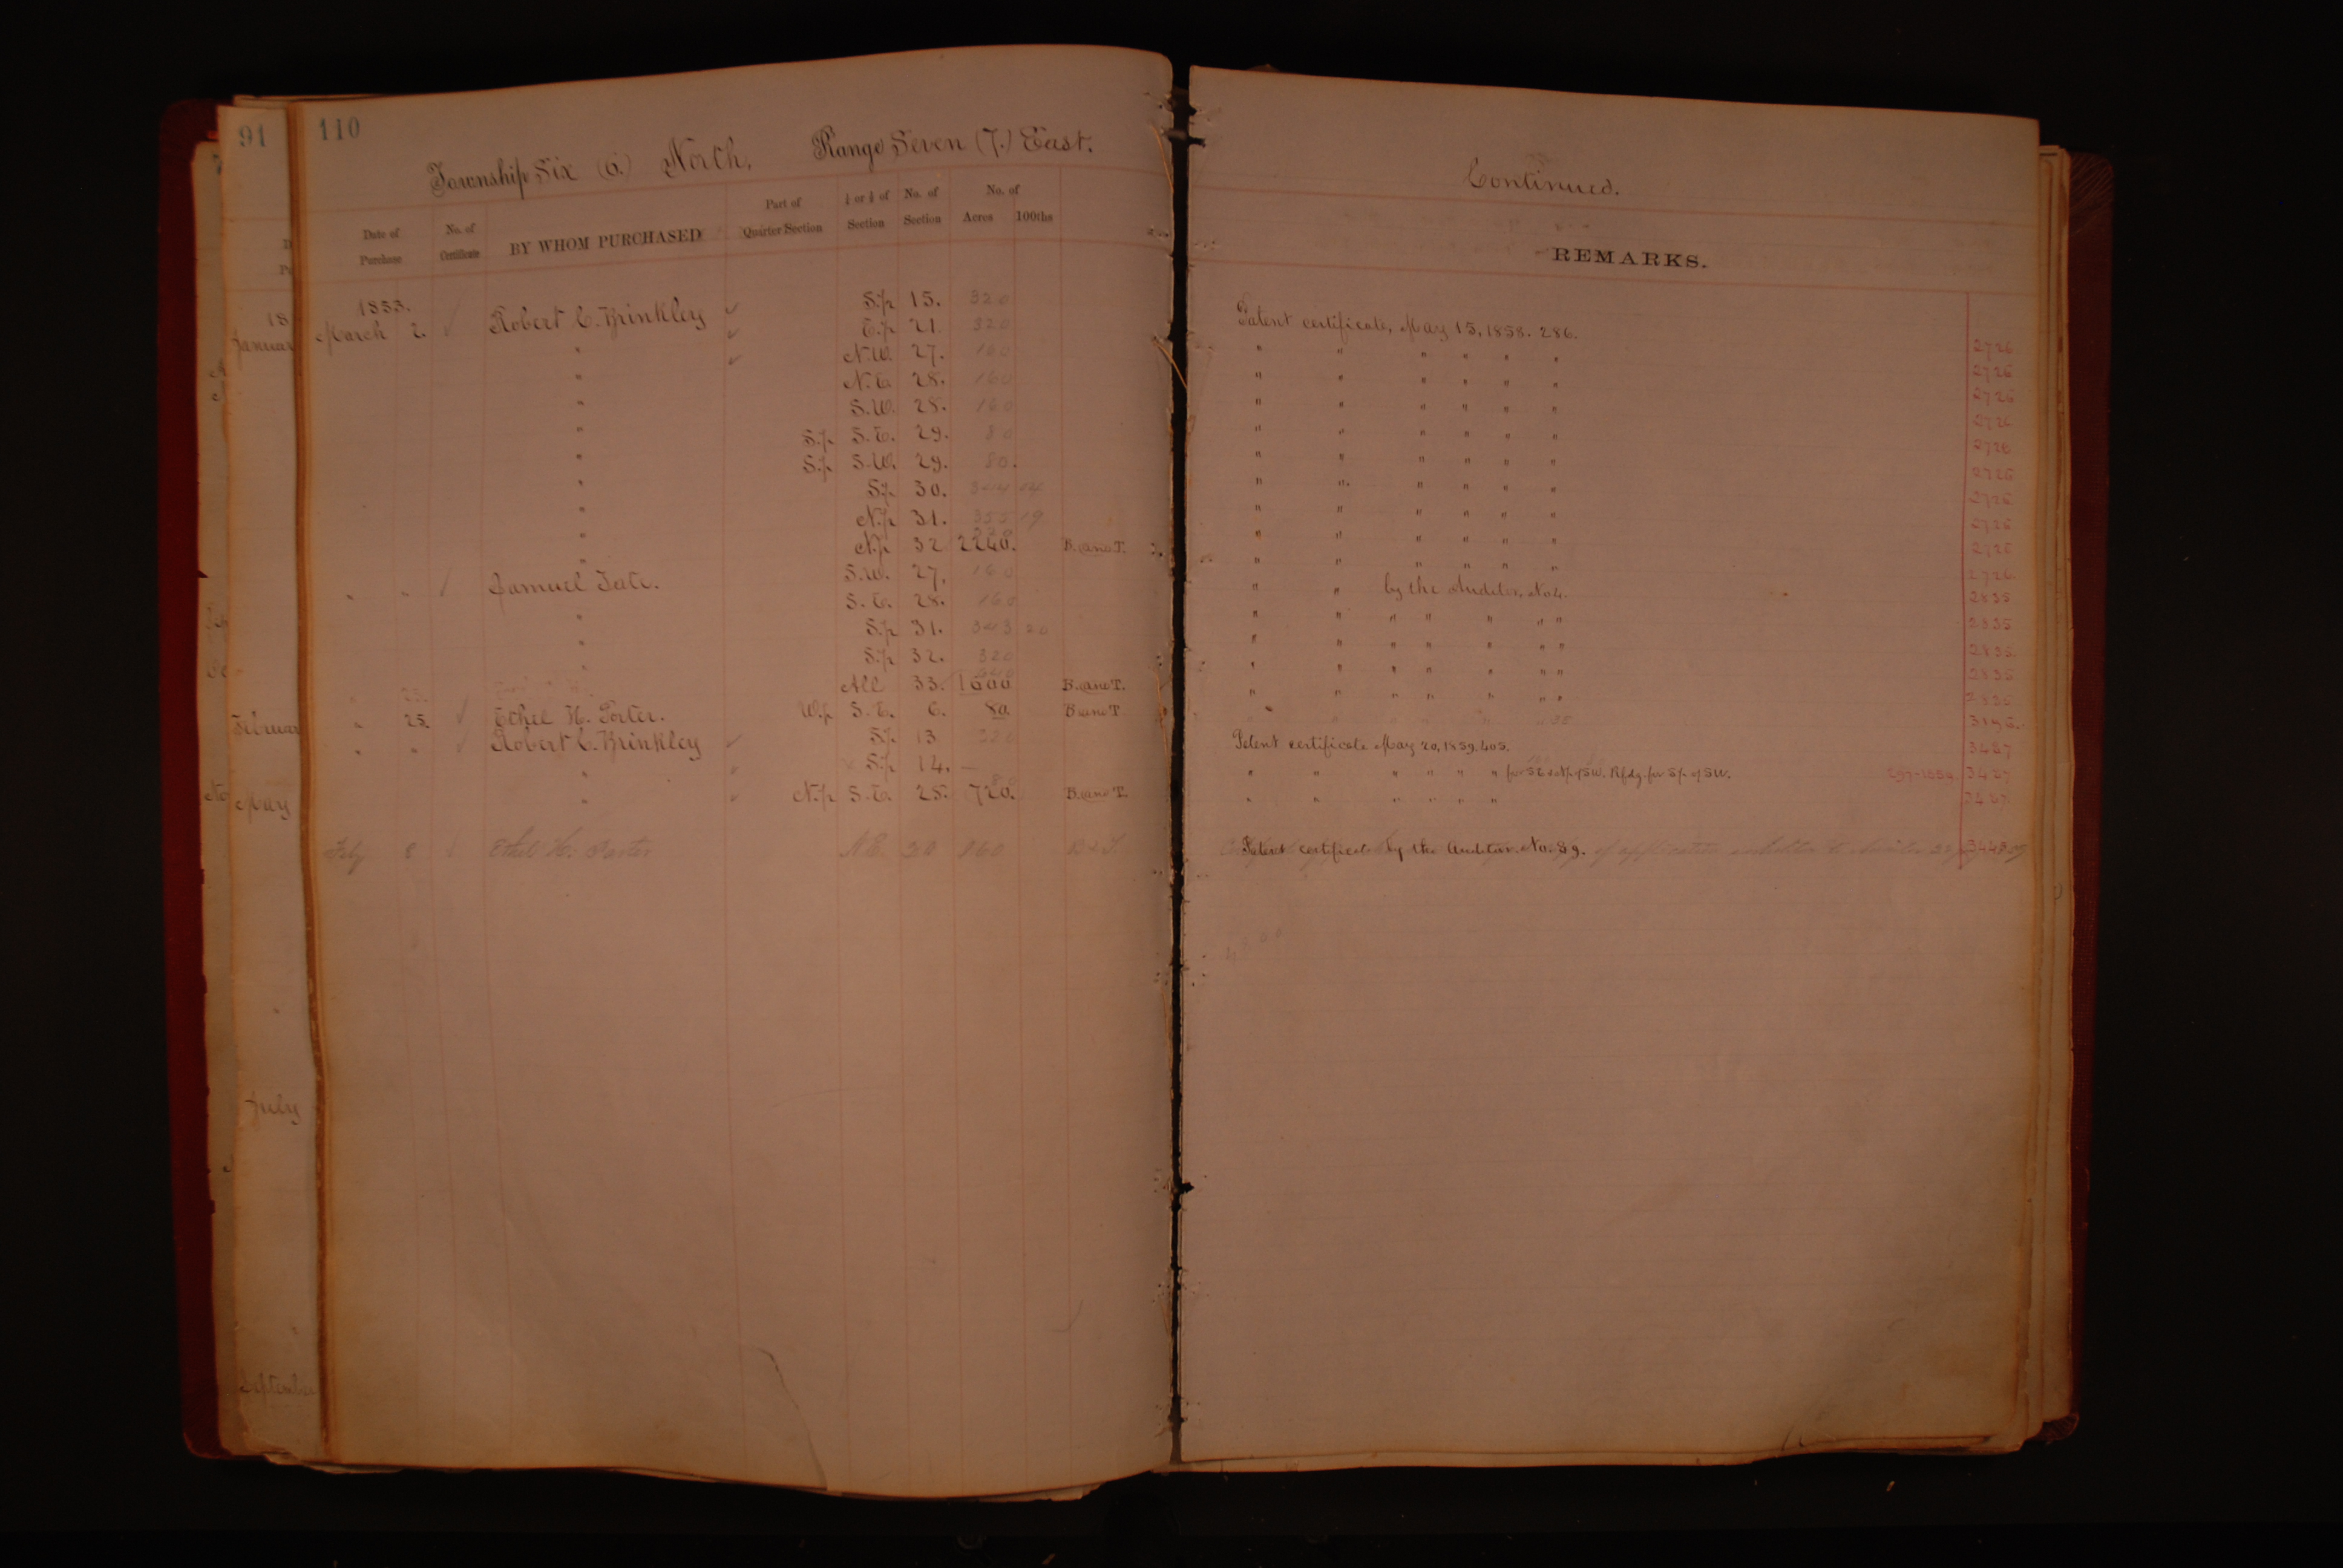 91
110
Township Six (6.) North, Range Seven (7.) East.
Date of Purchase No. of Certificate BY WHOM PURCHASED Part of Quarter Section No. of Section No. of Acres 100ths
1853.
March 2. Robert C. Brinkley S.½ 15. 320
" E.½ 21. 320
" N.W. 27. 160
" N.E. 28. 160
" S.W. 28. 160
" S.½ S.E. 29. 80
" S.½ S.W. 29. 80.
" S.½ 30. 344 04
" N.½ 31. 355 19
" N.½ 32 B. and T.
" " Samuel Tate. S.W. 27. 160
" S.E. 28. 160
" S.½ 31. 343 20
" S.½ 32. 320
All 33. B. and T.
" 25. Ethel H. Porter. W.½ S.E. 6. 80 B and T
" " Robert C. Brinkley S.½ 13 320
" S.½ 14. —
" N.½ S.E. 25. 720. B. and T.
Feby 8 Ethel H. Porter N.E. 30 160 B & T
18
January
February
May
July
September
Continued.
REMARKS.
Patent certificate, May 15, 1858. 286. 2726
" " " " " " 2726
" " " " " " 2726
" " " " " " 2726
" " " " " " 2726
" " " " " " 2726
" " " " " " 2726
" " " " " " 2726
" " " " " " 2726
" " " " " " 2726
" " by the Auditor, No 4. 2835
" " " " " " " 2835
" " " " " " " 2835
" " " " " " " 2835
" " " " " " " 2835
35 3196.
Patent certificate May 20, 1859. 403. 3427
" " " " " " for SE & N½ of SW. Rfdg. for S½ of SW. 3427
" " " " " " 3427
Patent certified by the Auditor. No. 89. of application 3448